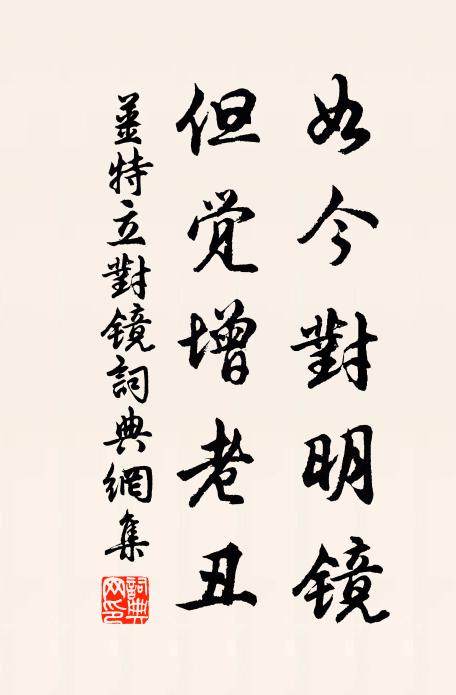 如今對明镜
但觉增老丑
姜特立對镜詞典網集
詞典网印